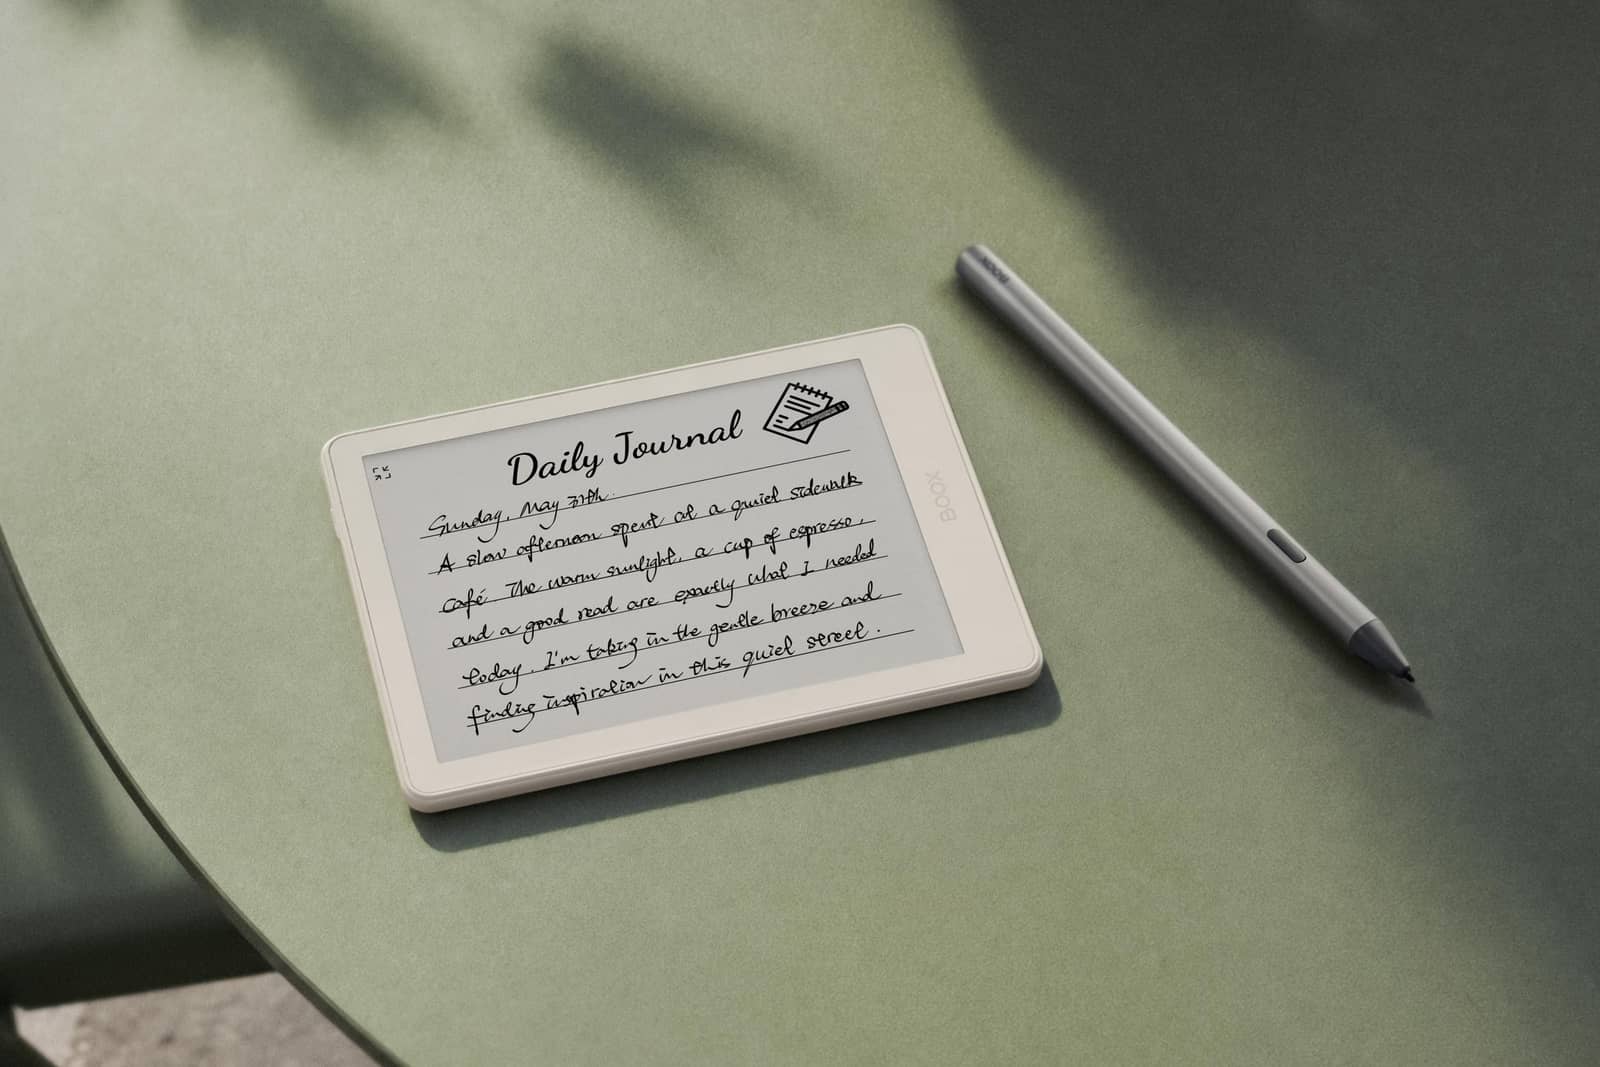 Daily Journal
Sunday, May 31th.
A slow afternoon spent at a quiet sidewalk
café. The warm sunlight, a cup of espresso,
and a good read are exactly what I needed
today. I'm taking in the gentle breeze and
finding inspiration in this quiet street.
BOOX
BOOX